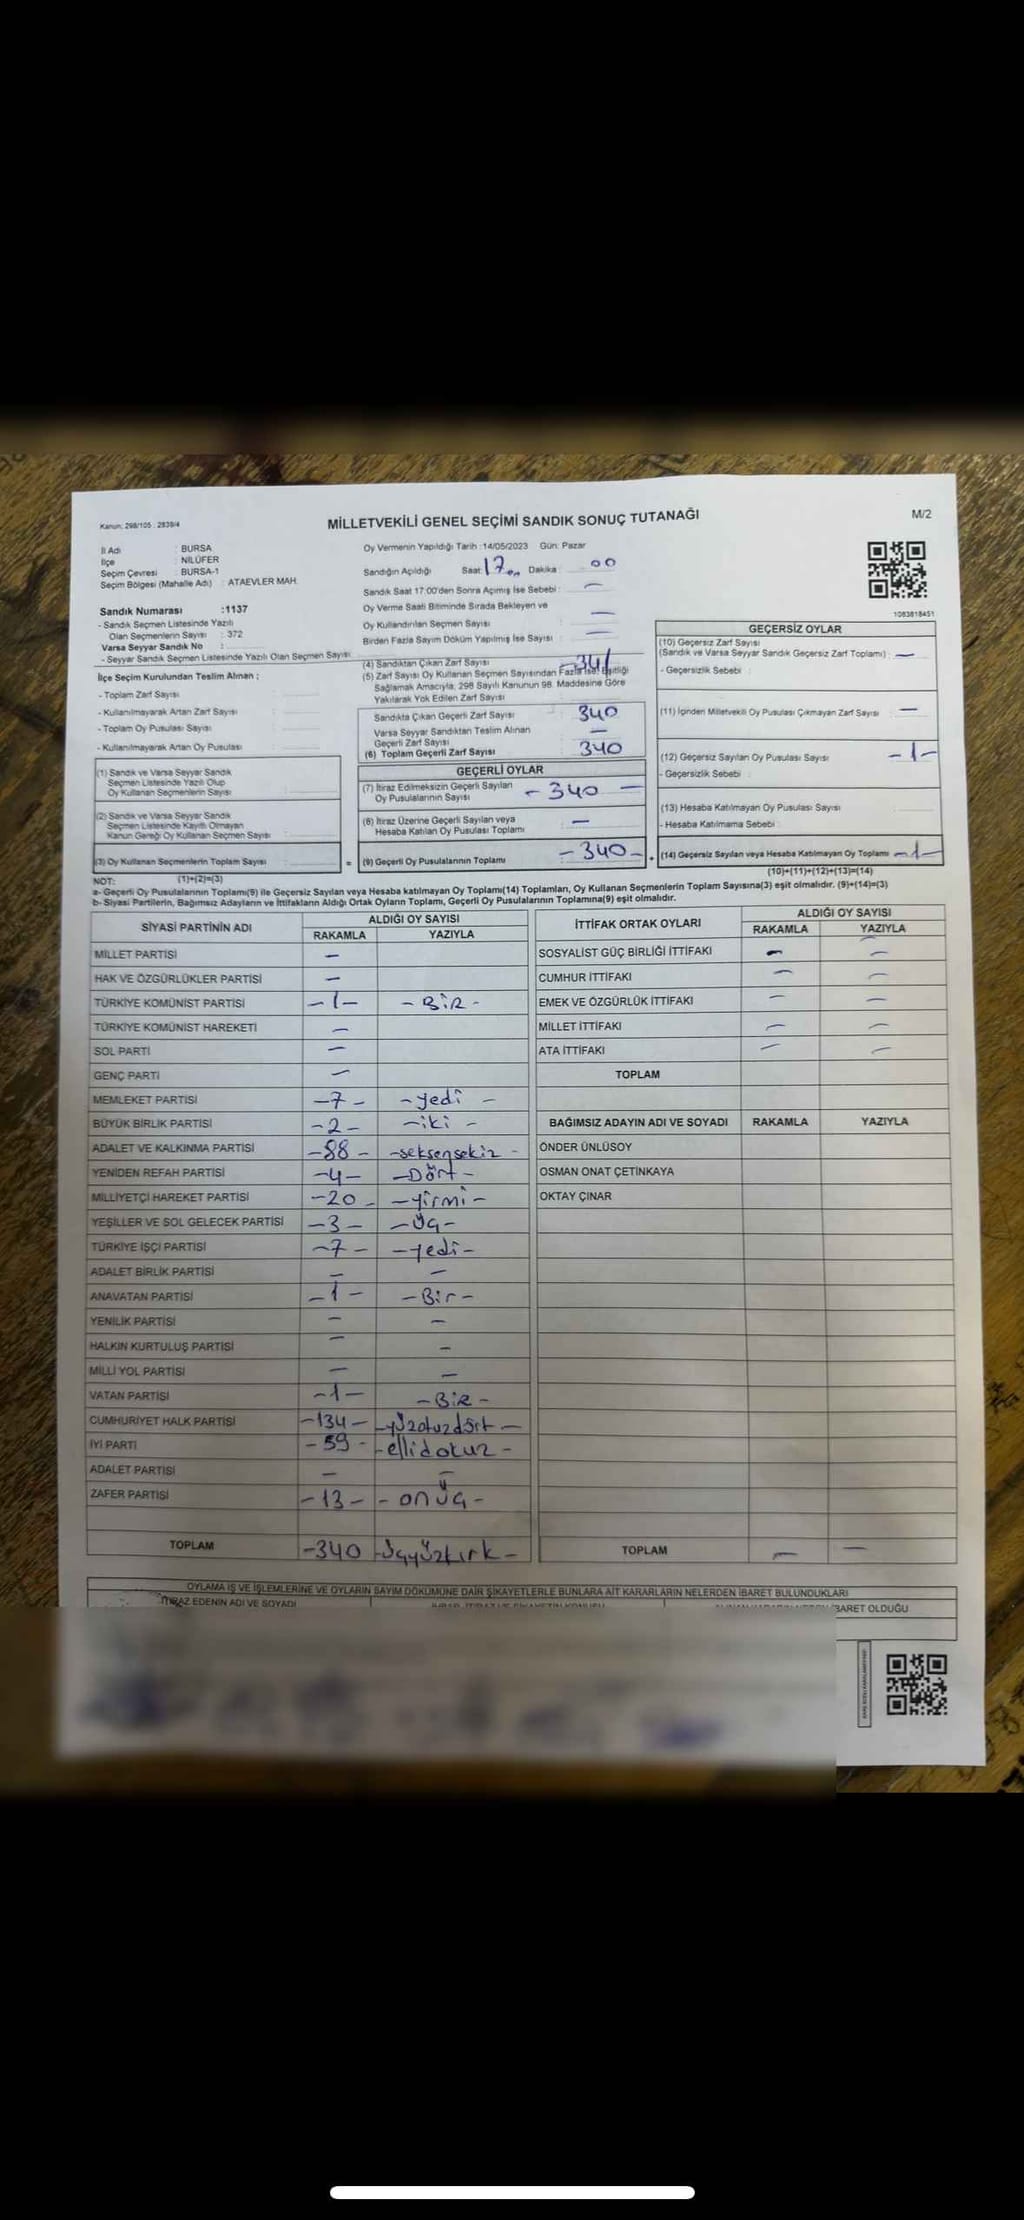 Kanun: 298/105 : 2839/4
MİLLETVEKİLİ GENEL SEÇİMİ SANDIK SONUÇ TUTANAĞI
M/2
İl Adı : BURSA
İlçe : NİLÜFER
Seçim Çevresi : BURSA-1
Seçim Bölgesi (Mahalle Adı) : ATAEVLER MAH.
Sandık Numarası :1137
- Sandık Seçmen Listesinde Yazılı
Olan Seçmenlerin Sayısı : 372
Varsa Seyyar Sandık No :
- Seyyar Sandık Seçmen Listesinde Yazılı Olan Seçmen Sayısı
İlçe Seçim Kurulundan Teslim Alınan ;
- Toplam Zarf Sayısı :
- Kullanılmayarak Artan Zarf Sayısı :
- Toplam Oy Pusulası Sayısı :
- Kullanılmayarak Artan Oy Pusulası :
(1) Sandık ve Varsa Seyyar Sandık
Seçmen Listesinde Yazılı Olup
Oy Kullanan Seçmenlerin Sayısı :
(2) Sandık ve Varsa Seyyar Sandık
Seçmen Listesinde Kayıtlı Olmayan
Kanun Gereği Oy Kullanan Seçmen Sayısı :
(3) Oy Kullanan Seçmenlerin Toplam Sayısı :
(1)+(2)=(3)
Oy Vermenin Yapıldığı Tarih :14/05/2023 Gün: Pazar
Sandığın Açıldığı Saat: 17 Dakika : 00
Sandık Saat 17:00'den Sonra Açımış İse Sebebi : —
Oy Verme Saati Bitiminde Sırada Bekleyen ve
Oy Kullandırılan Seçmen Sayısı : —
Birden Fazla Sayım Döküm Yapılmış İse Sayısı : —
(4) Sandıktan Çıkan Zarf Sayısı -341
(5) Zarf Sayısı Oy Kullanan Seçmen Sayısından Fazla İse, Eşitliği
Sağlamak Amacıyla, 298 Sayılı Kanunun 98. Maddesine Göre
Yakılarak Yok Edilen Zarf Sayısı :
Sandıkta Çıkan Geçerli Zarf Sayısı : 340
Varsa Seyyar Sandıktan Teslim Alınan
Geçerli Zarf Sayısı : —
(6) Toplam Geçerli Zarf Sayısı : 340
GEÇERLİ OYLAR
(7) İtiraz Edilmeksizin Geçerli Sayılan
Oy Pusulalarının Sayısı - 340 —
(8) İtiraz Üzerine Geçerli Sayılan veya
Hesaba Katılan Oy Pusulası Toplamı : —
= (9) Geçerli Oy Pusulalarının Toplamı -340- +
1083818451
GEÇERSİZ OYLAR
(10) Geçersiz Zarf Sayısı
(Sandık ve Varsa Seyyar Sandık Geçersiz Zarf Toplamı) : —
- Geçersizlik Sebebi :
(11) İçinden Milletvekili Oy Pusulası Çıkmayan Zarf Sayısı : —
(12) Geçersiz Sayılan Oy Pusulası Sayısı : -1-
- Geçersizlik Sebebi :
(13) Hesaba Katılmayan Oy Pusulası Sayısı :
- Hesaba Katılmama Sebebi :
(14) Geçersiz Sayılan veya Hesaba Katılmayan Oy Toplamı -1-
(10)+(11)+(12)+(13)=(14)
NOT:
a- Geçerli Oy Pusulalarının Toplamı(9) ile Geçersiz Sayılan veya Hesaba katılmayan Oy Toplamı(14) Toplamları, Oy Kullanan Seçmenlerin Toplam Sayısına(3) eşit olmalıdır. (9)+(14)=(3)
b- Siyasi Partilerin, Bağımsız Adayların ve İttifakların Aldığı Ortak Oyların Toplamı, Geçerli Oy Pusulalarının Toplamına(9) eşit olmalıdır.
SİYASİ PARTİNİN ADI ALDIĞI OY SAYISI
RAKAMLA YAZIYLA
MİLLET PARTİSİ —
HAK VE ÖZGÜRLÜKLER PARTİSİ —
TÜRKİYE KOMÜNİST PARTİSİ -1- - BİR -
TÜRKİYE KOMÜNİST HAREKETİ —
SOL PARTİ —
GENÇ PARTİ —
MEMLEKET PARTİSİ -7- -yedi -
BÜYÜK BİRLİK PARTİSİ -2- -iki -
ADALET VE KALKINMA PARTİSİ -88- -seksensekiz -
YENİDEN REFAH PARTİSİ -4- -Dört-
MİLLİYETÇİ HAREKET PARTİSİ -20- -yirmi-
YEŞİLLER VE SOL GELECEK PARTİSİ -3- -Üç-
TÜRKİYE İŞÇİ PARTİSİ -7- -yedi-
ADALET BİRLİK PARTİSİ — —
ANAVATAN PARTİSİ -1- -Bir-
YENİLİK PARTİSİ — —
HALKIN KURTULUŞ PARTİSİ — —
MİLLİ YOL PARTİSİ — —
VATAN PARTİSİ -1- -BİR-
CUMHURİYET HALK PARTİSİ -134- -yüzotuzdört-
İYİ PARTİ -59- -ellidokuz-
ADALET PARTİSİ — —
ZAFER PARTİSİ -13- - onüç-
TOPLAM -340 -üçyüzkırk-
İTTİFAK ORTAK OYLARI ALDIĞI OY SAYISI
RAKAMLA YAZIYLA
SOSYALİST GÜÇ BİRLİĞİ İTTİFAKI — —
CUMHUR İTTİFAKI — —
EMEK VE ÖZGÜRLÜK İTTİFAKI — —
MİLLET İTTİFAKI — —
ATA İTTİFAKI — —
TOPLAM
BAĞIMSIZ ADAYIN ADI VE SOYADI RAKAMLA YAZIYLA
ÖNDER ÜNLÜSOY
OSMAN ONAT ÇETİNKAYA
OKTAY ÇINAR
TOPLAM — —
OYLAMA İŞ VE İŞLEMLERİNE VE OYLARIN SAYIM DÖKÜMÜNE DAİR ŞİKAYETLERLE BUNLARA AİT KARARLARIN NELERDEN İBARET BULUNDUKLARI
İTİRAZ EDENİN ADI VE SOYADI
İBARET OLDUĞU